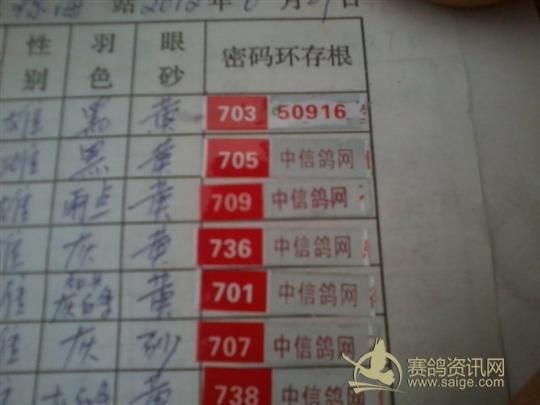 站2012年6月29日
性别 羽色 眼砂 密码环存根
雄 黑 黄 703 50916
雄 黑 黄 705 中信鸽网
雄 雨点 黄 709 中信鸽网
雄 灰 黄 736 中信鸽网
雄 黄 701 中信鸽网
雄 灰 砂 707 中信鸽网
黄 738 中信鸽网
赛鸽资讯网
www.saige.com